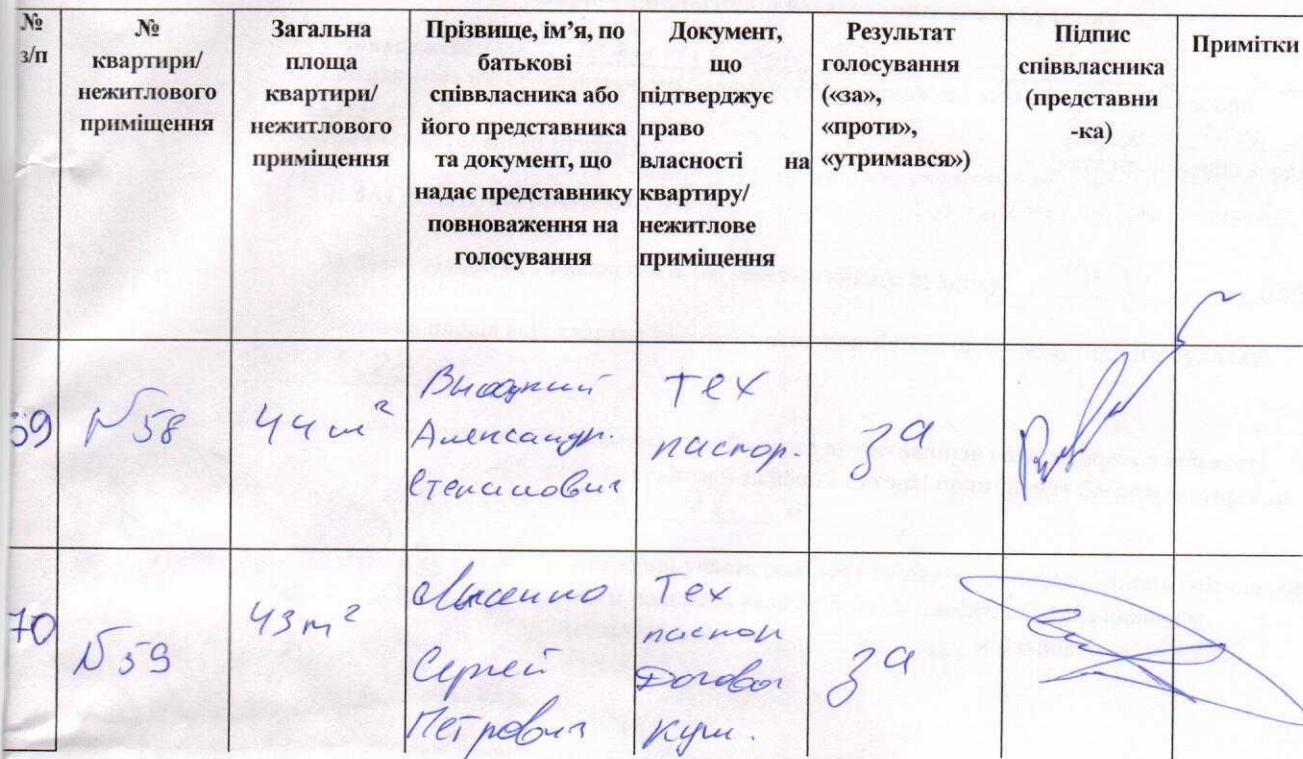 № з/п
№ квартири/ нежитлового приміщення
Загальна площа квартири/ нежитлового приміщення
Прізвище, ім’я, по батькові співвласника або його представника та документ, що надає представнику повноваження на голосування
Документ, що підтверджує право власності на квартиру/ нежитлове приміщення
Результат голосування («за», «проти», «утримався»)
Підпис співвласника (представни -ка)
Примітки
69
№58
44 м²
Александр.
Степанович
тех
паспор.
за
70
№59
43 m²
Сергей
Петрович
Тех
паспорт
Договор
куп.
за